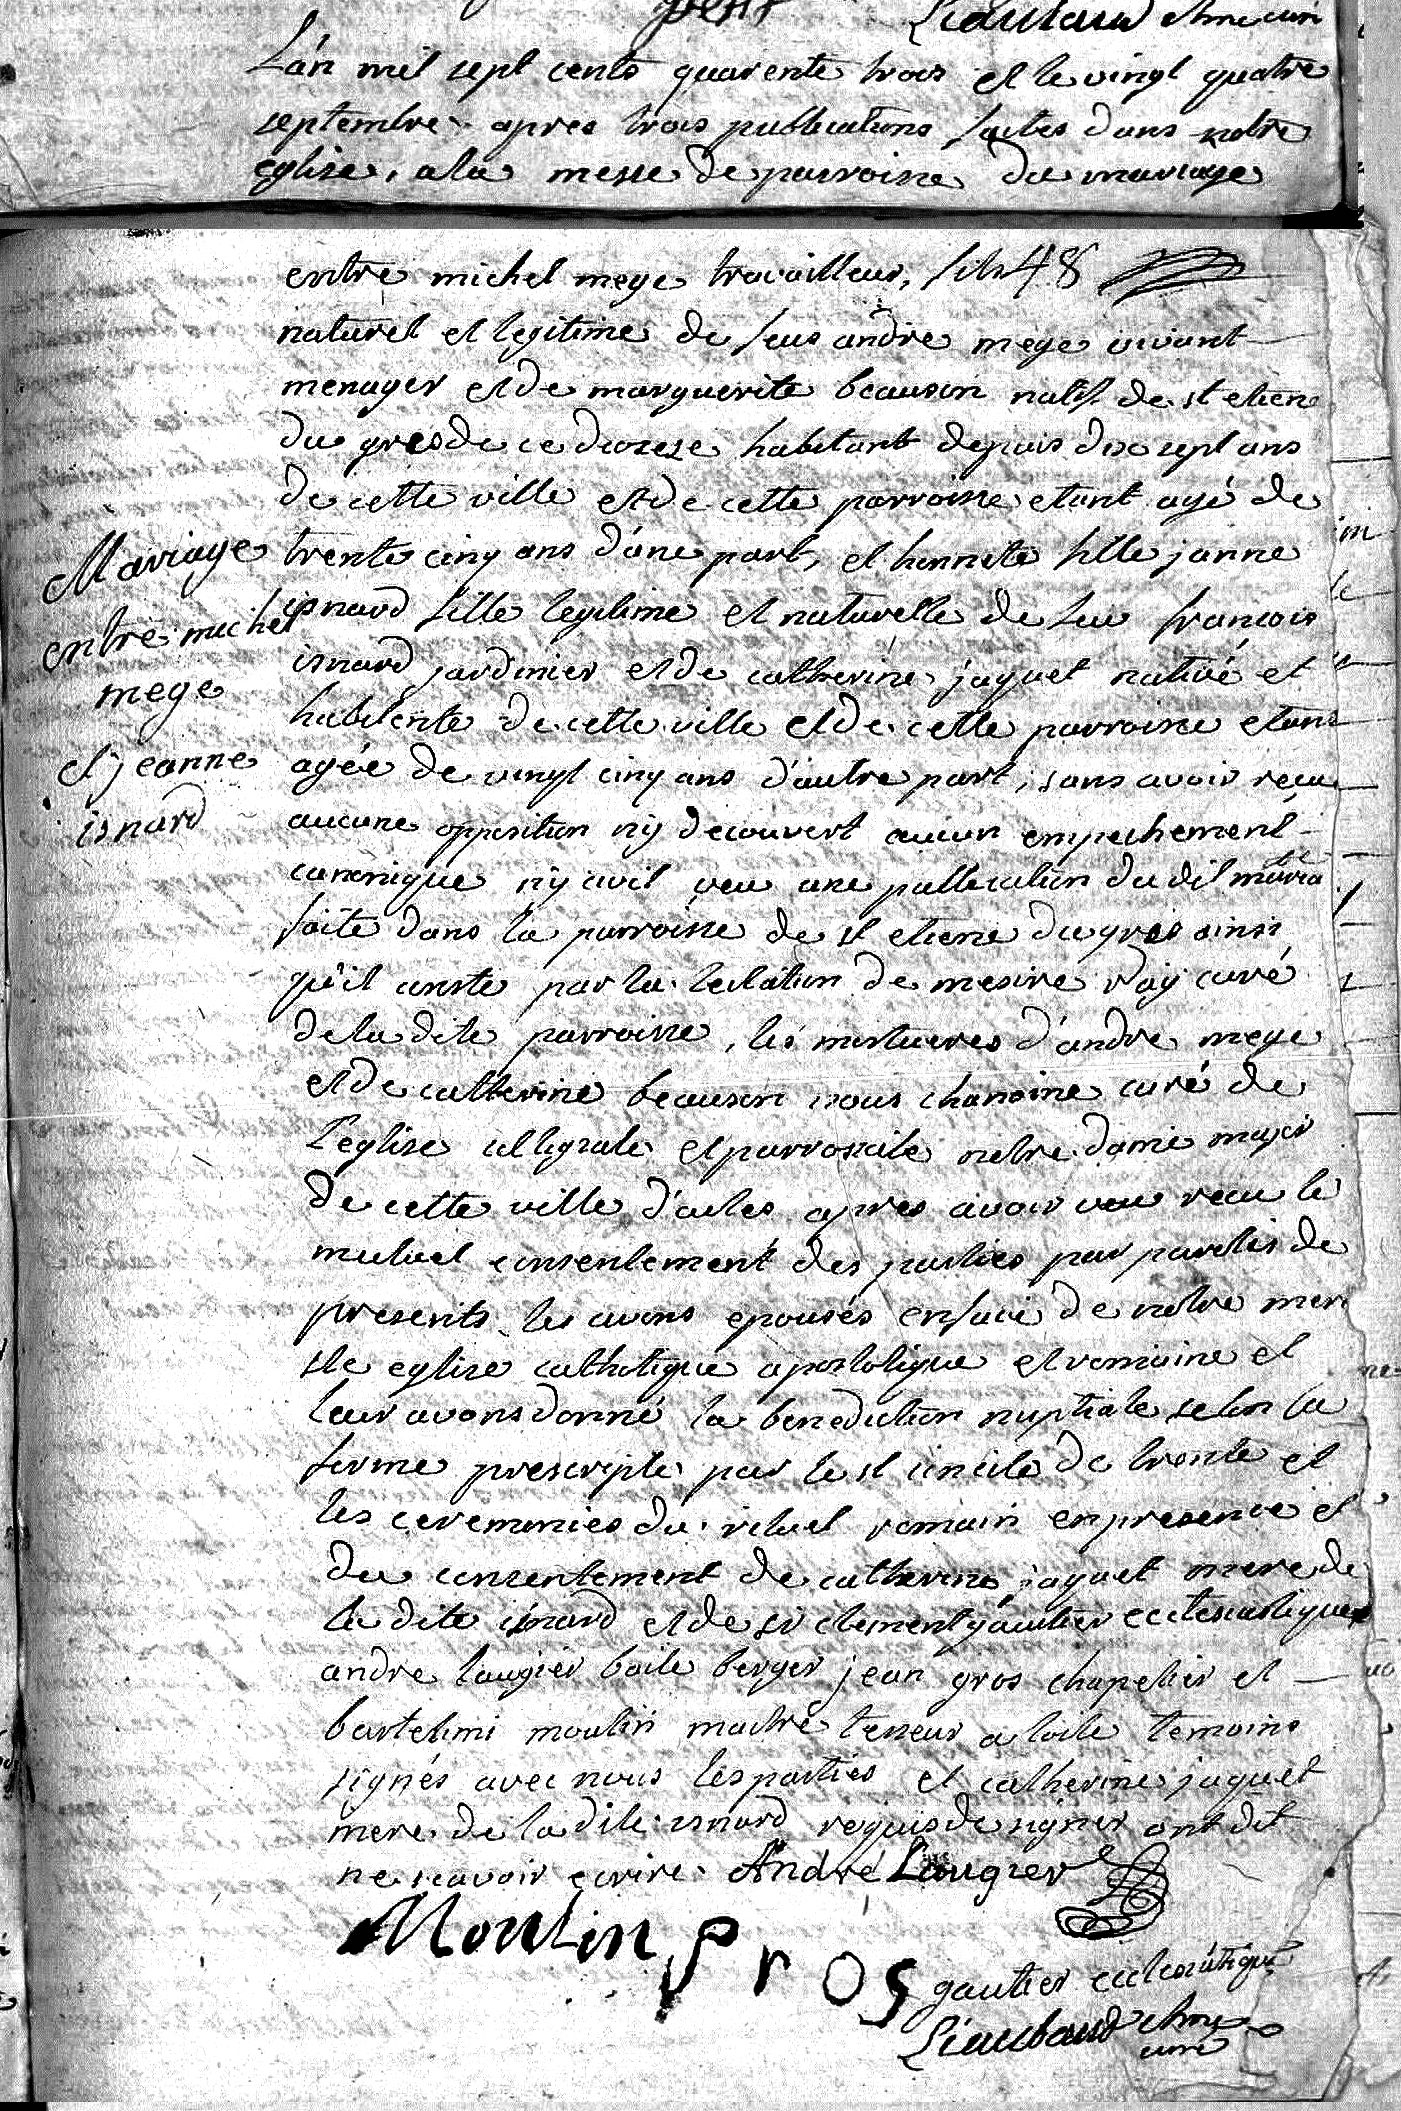 Lieutaud chne curé
L'an mil sept cents quarente trois et le vingt quatre
septembre apres trois publications faites dans notre
eglise, a la messe de parroisse du mariage
entre michel mege travailleur, fils 48
naturel et legitime de feus andre mege vivant
menager et de marguerite beausin natif de st etiene
du gres de ce diozeze habitant depuis dix sept ans
de cette ville et de cette parroisse etant agé de
trente cinq ans d'une part, et honnete fille janne
isnard fille legitime et naturelle de feu francois
isnard jardinier et de catherine jaquet native et
habitente de cette ville et de cette parroisse etant
agée de vingt cinq ans d'autre part, sans avoir recu
aucune opposition ny decouvert aucun empechement
canonique ny civil veu une publication du dit maria
ge
faite dans la parroisse de st etiene du gres ainsi
qu'il conste par la de messire curé
de la dite parroisse, les mortueres d'andre mege
et de catherine beausin nous chanoine curé de
l'eglise collegiale et parroissiale notre dame major
de cette ville d'arles apres avoir recu le
mutuel consentement des parties par paroles de
presents les avons epousés en face de notre mere
ste eglise catholique apostolique et romaine et
leur avons donné la benediction nuptiale selon la
forme prescripte par le st concile de trente et
les ceremonies du rituel romain en presence et
du consentement de catherine jaquet mere de
la dite isnard et de sr clement gautier ecclesiastique
andre laugier baile berger jean gros chapelier et
bartelimi moulin maitre tesseur a toile temoins
signés avec nous les parties et catherine jaquet
mere de la dite isnard requis de signer ont dit
ne scavoir ecrire. André Laugier
Moulin gros
gautier ecclesiastique
Lieutaud chne
curé
Mariage
entre michel
mege
et jeanne
isnard